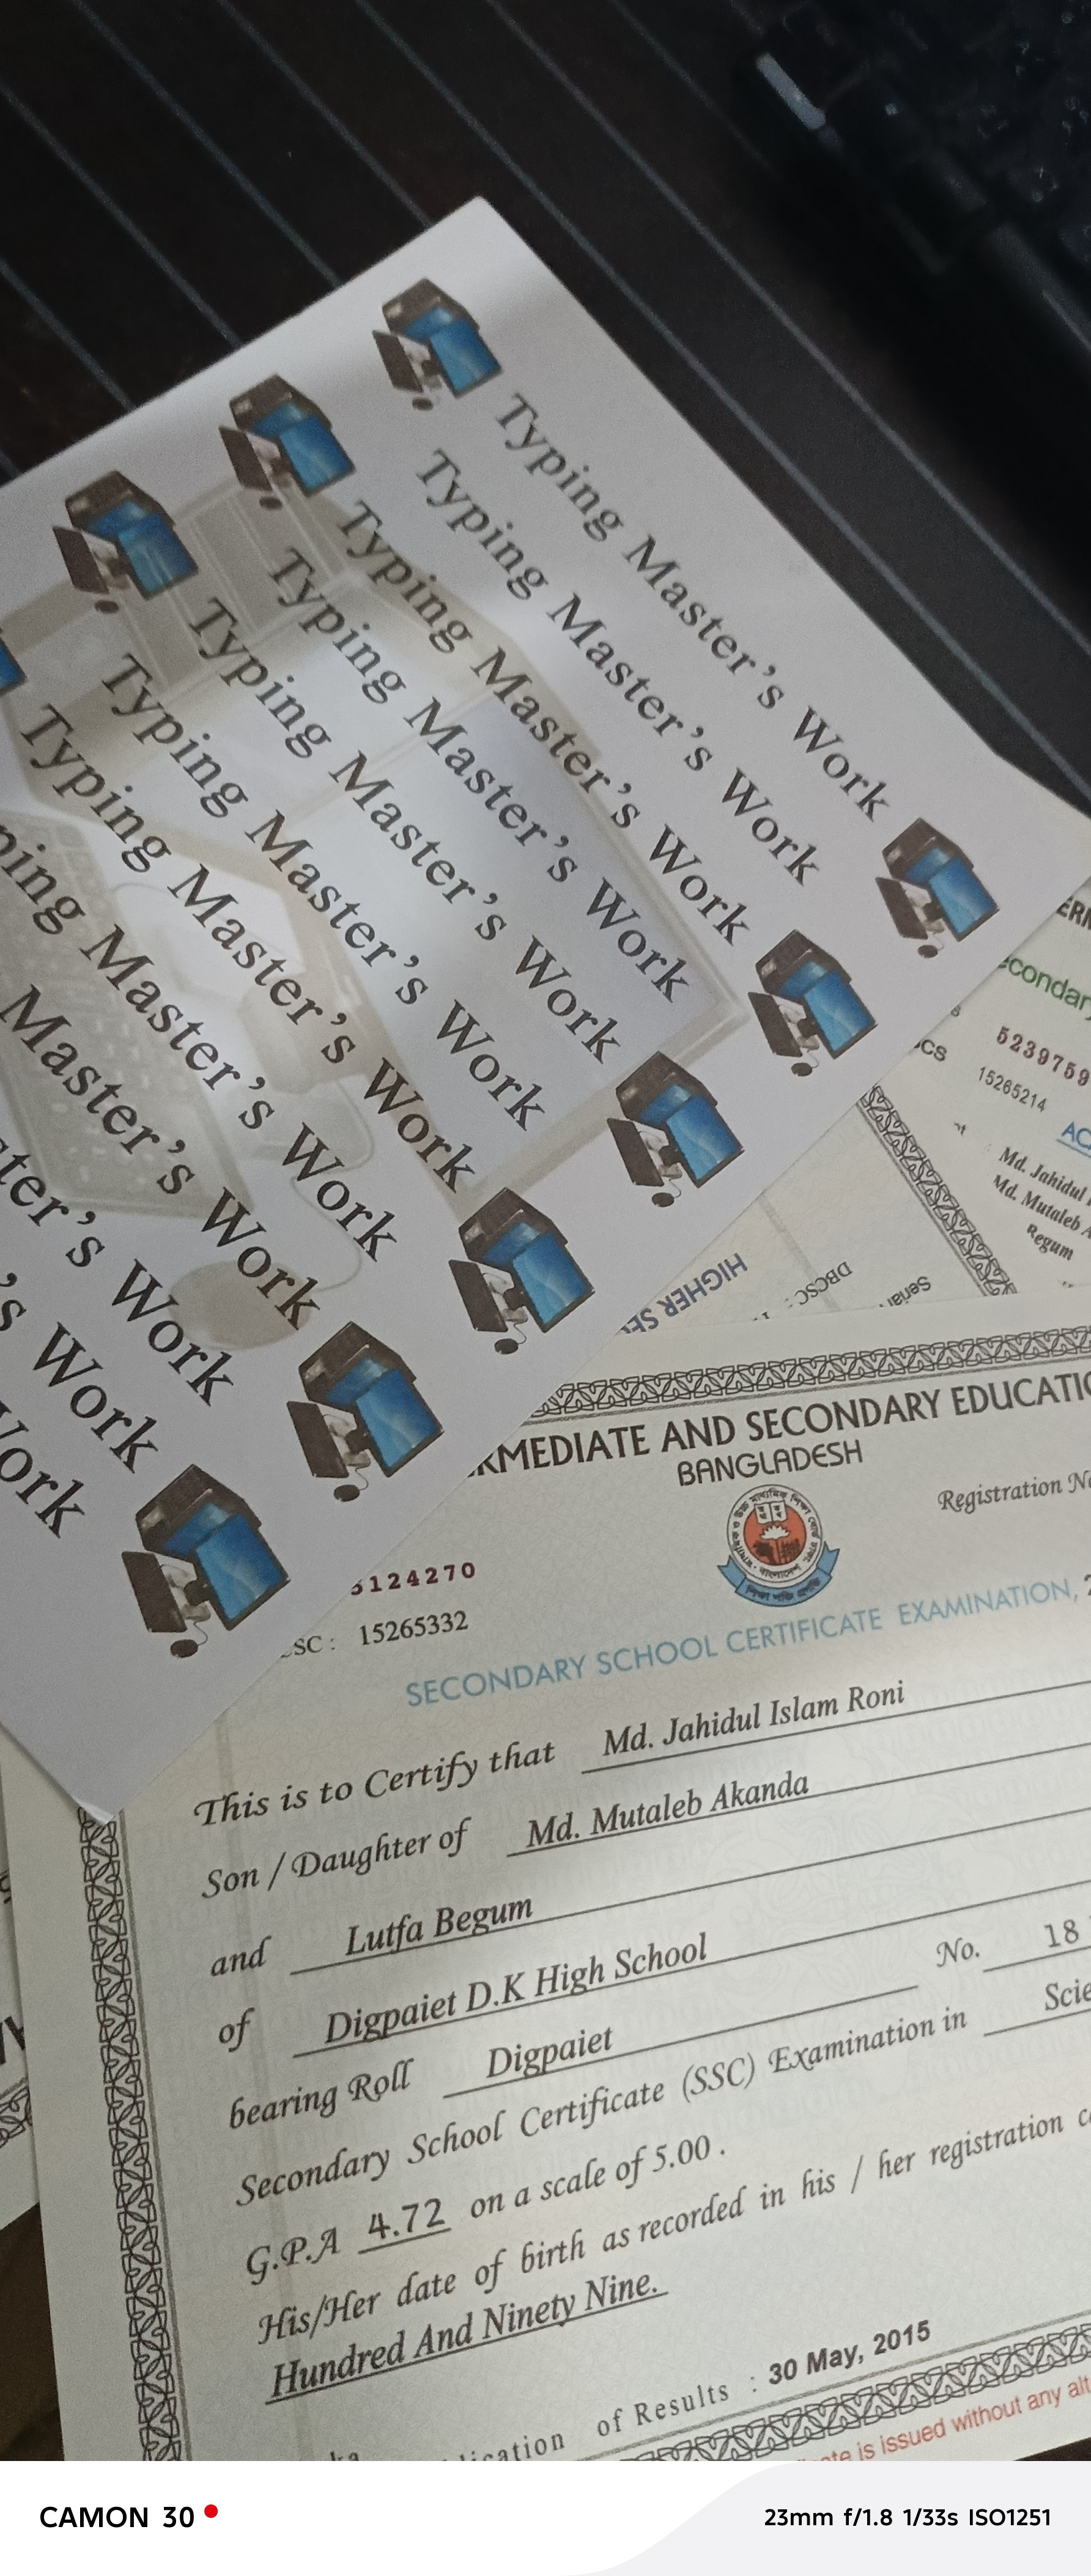 Typing Master's Work
Typing Master's Work
Typing Master's Work
Typing Master's Work
Typing Master's Work
Typing Master's Work
Typing Master's Work
ping Master's Work
Master's Work
ster's Work
's Work
Work
ERM
econdary
5239759
CS
15265214
AC
Md. Jahidul
Md. Mutaleb A
Begum
HIGHER SE
DBCSC :
Serial
RMEDIATE AND SECONDARY EDUCATIO
BANGLADESH
Registration No
5124270
SC : 15265332
SECONDARY SCHOOL CERTIFICATE EXAMINATION, 2
This is to Certify that Md. Jahidul Islam Roni
Son / Daughter of Md. Mutaleb Akanda
and Lutfa Begum
of Digpaiet D.K High School
bearing Roll Digpaiet No. 18
Secondary School Certificate (SSC) Examination in Scie
G.P.A 4.72 on a scale of 5.00 .
His/Her date of birth as recorded in his / her registration c
Hundred And Ninety Nine.
lication of Results : 30 May, 2015
ate is issued without any alt
CAMON 30
23mm f/1.8 1/33s ISO1251